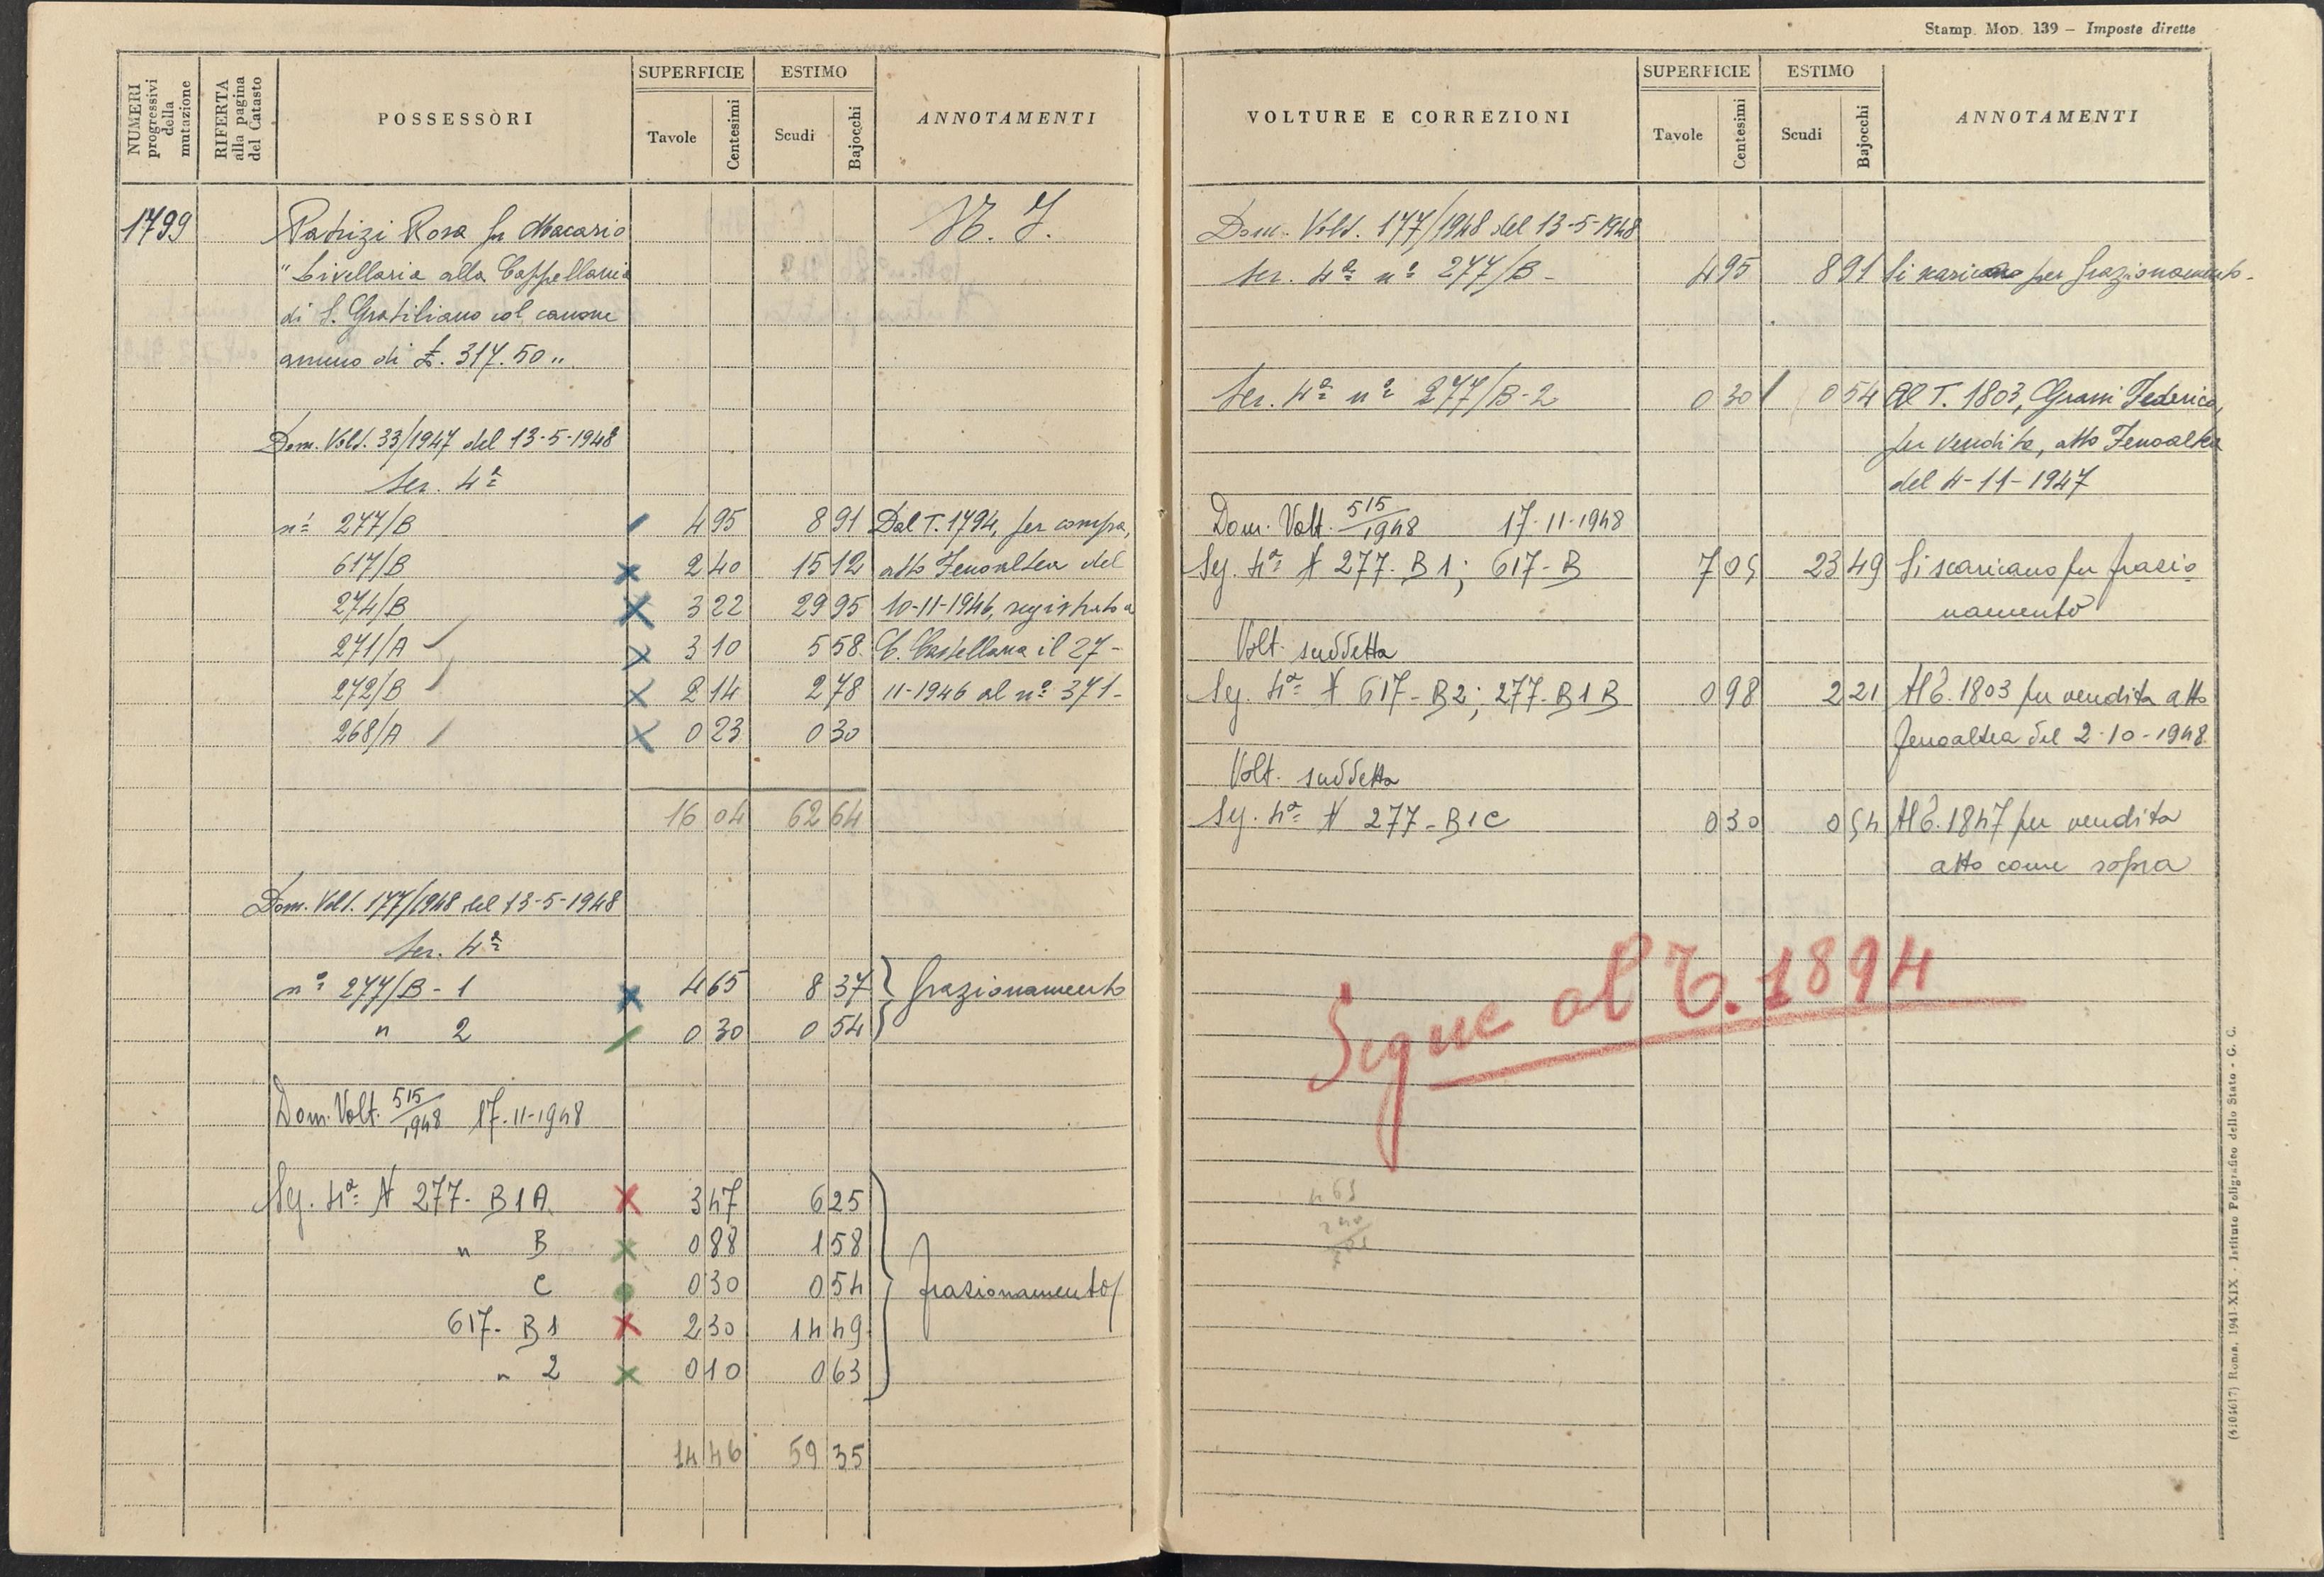 NUMERI progressivi della mutazione
RIFERTA alla pagina del Catasto
POSSESSORI
SUPERFICIE
Tavole
Centesimi
ESTIMO
Scudi
Bajocchi
ANNOTAMENTI
1799
Patrizi Rosa fu Macario
N. I.
"Livellaria alla Cappellania
di S. Gratiliano col canone
annuo di £. 317.50"
Dom. Volt. 33/1947 del 13-5-1948
Sez. 4ª
nº 277/B 4 95 8 91 Dal T. 1794, per compra,
617/B 2 40 15 12 atto Fenoaltea del
274/B 3 22 29 95 10-11-1946, registrato a
271/A 3 10 5 58 C. Castellana il 27-
272/B 2 14 2 78 11-1946 al nº 371-
268/A 0 23 0 30
16 04 62 64
Dom. Volt. 177/1948 del 13-5-1948
Sez. 4ª
nº 277/B-1 4 65 8 37 frazionamento
" 2 0 30 0 54
Dom. Volt. 515/1948 17-11-1948
Sez. 4ª N 277-B1A 3 47 6 25
" B 0 88 1 58
C 0 30 0 54 frazionamento
617-B1 2 30 14 49
" 2 0 10 0 63
14 46 59 35
Stamp. Mod. 139 – Imposte dirette
VOLTURE E CORREZIONI
SUPERFICIE
Tavole
Centesimi
ESTIMO
Scudi
Bajocchi
ANNOTAMENTI
Dom. Volt. 177/1948 del 13-5-1948
Sez. 4ª nº 277/B- 4 95 8 91 Si scaricano per frazionamento-
Sez. 4ª nº 277/B-2 0 30 0 54 Al T. 1803, Federico,
per vendita, atto Fenoaltea
del 4-11-1947
Dom. Volt. 515/1948 17-11-1948
Sez. 4ª N 277-B1; 617-B 7 05 23 49 Si scaricano per frazio
namento
Volt. suddetta
Sez. 4ª N 617-B2; 277-B1B 0 98 2 21 Al T. 1803 per vendita atto
Fenoaltea del 2-10-1948
Volt. suddetta
Sez. 4ª N 277-B1C 0 30 0 54 Al T. 1847 per vendita
atto come sopra
Segue al T. 1894
4 65
2 40
7 05
(4104617) Roma, 1941-XIX - Istituto Poligrafico dello Stato - G. C.